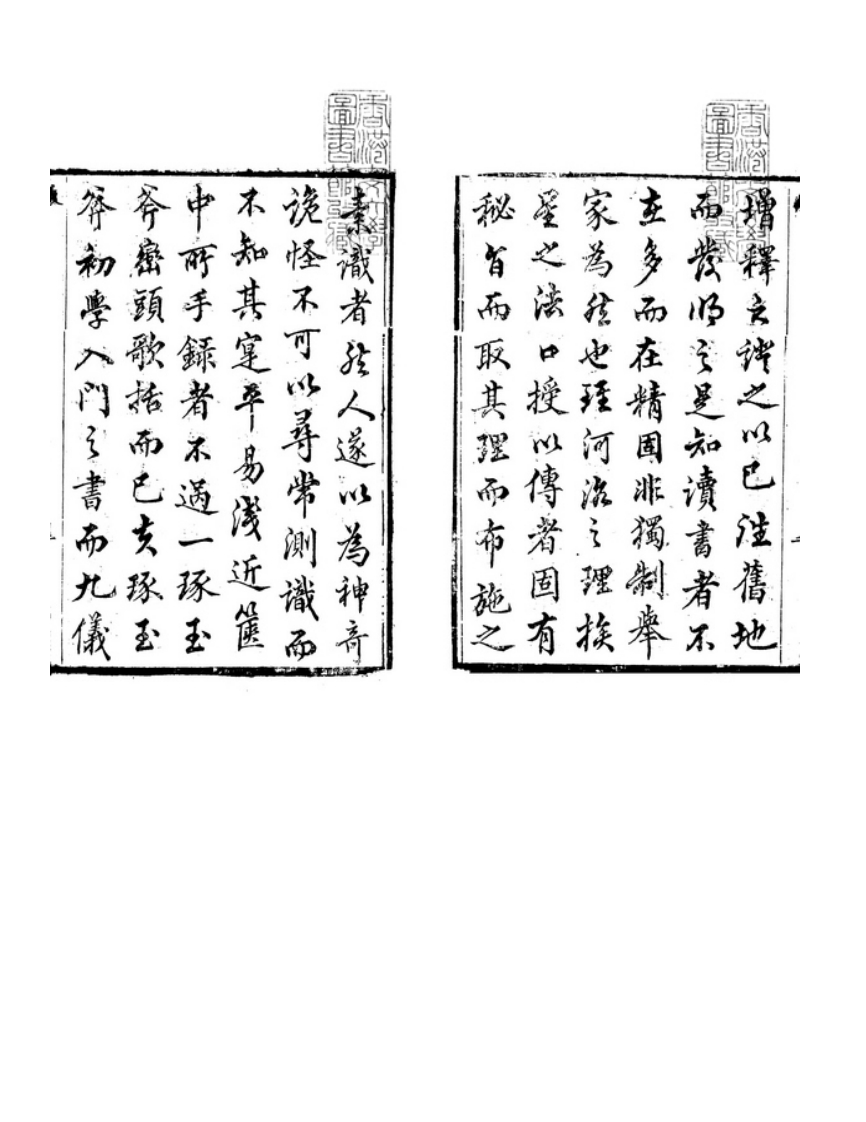 增釋之證之以已往舊地
而發明之是知讀書者不
在多而在精固非獨制舉
家為然也理河洛之理挨
星之法口授以傳者固有
秘旨而取其理而布施之
素識者然人遂以為神奇
詭怪不可以尋常測識而
不知其寔平易淺近篋
中所手錄者不過一琢玉
斧巒頭歌括而已夫琢玉
斧初學入門之書而九儀